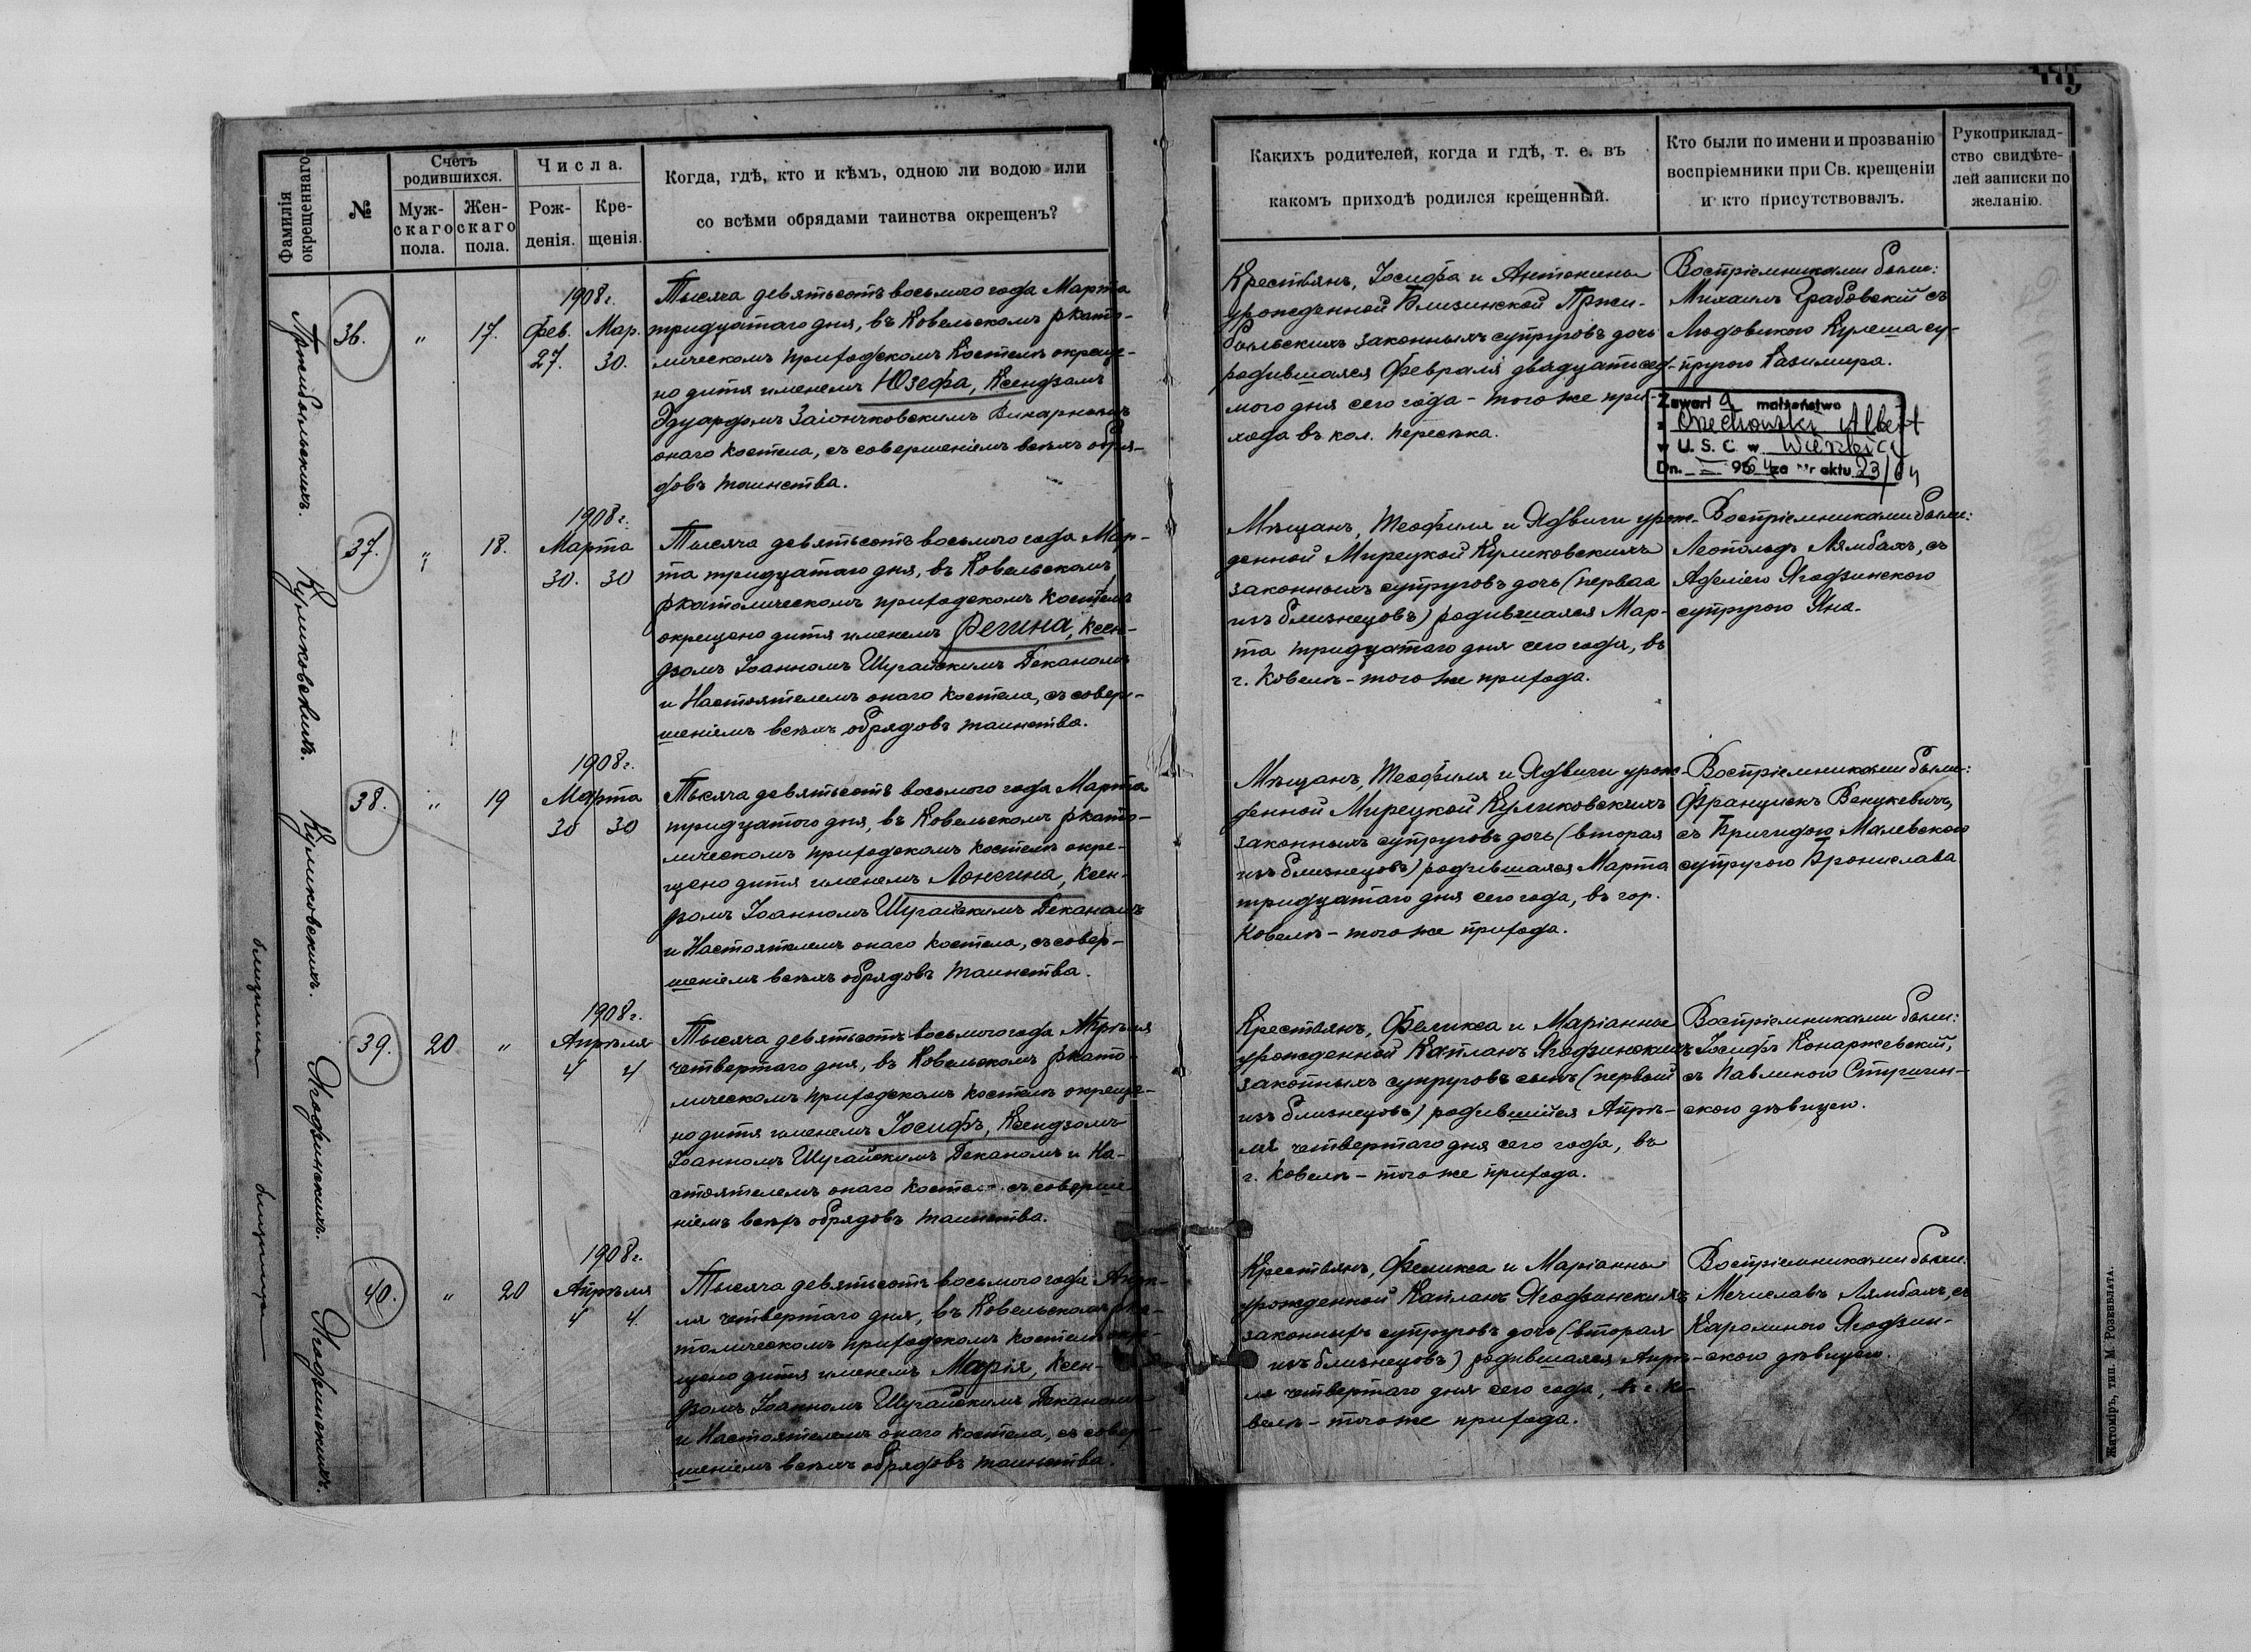 Фамилія
окрещеннаго
№
Счетъ
родившихся.
Муж-
скаго
пола.
Жен-
скаго
пола.
Числа.
Рож-
денія.
Кре-
щенія.
Когда, гдѣ, кто и кѣмъ, одною ли водою или
со всѣми обрядами таинства окрещенъ?
Какихъ родителей, когда и гдѣ, т. е. въ
какомъ приходѣ родился крещенный.
Кто были по имени и прозванію
воспріемники при Св. крещеніи
и кто присутствовалъ.
Рукоприклад-
ство свидѣте-
лей записки по
желанію.
Пржибыльскихъ.
36.
"
17.
1908 г.
Фев. Мар.
27. 30.
Тысяча девятьсотъ восьмого года Марта
тридцатаго дня, въ Ковельскомъ ркато-
лическомъ приходскомъ костелѣ окреще-
но дитя именемъ Юзефа, Ксендзомъ
Эдуардомъ Заіончковскимъ Викарнымъ
онаго костела, съ совершеніемъ всѣхъ обря-
довъ таинства.
Крестьянъ, Іосифа и Антонины
урожденной Близинской Пржи-
быльскихъ законныхъ супруговъ дочь
родившаяся Февраля двадцатисед-
мого дня сего года - того же при-
хода въ кол. Пересѣка.
Воспріемниками были:
Михаилъ Грабовскій съ
Людовикою Кулеша су-
пругою Казимира.
Zawarł a małżeństwo
z Orzechowski Albert
w U. S. C. w
Dn. 1964 za Nr aktu 23/64
Куликовскихъ.
37.
"
18.
1908 г.
Марта
30. 30
Тысяча девятьсотъ восьмого года Мар-
та тридцатаго дня, въ Ковельскомъ
ркатолическомъ приходскомъ костелѣ
окрещено дитя именемъ Регина, Ксен-
дзомъ Іоанномъ Шугайскимъ Деканомъ
и Настоятелемъ онаго костела, съ совер-
шеніемъ всѣхъ обрядовъ таинства.
Мѣщанъ, Теофиля и Ядвиги урож-
денной Мирецкой Куликовскихъ
законныхъ супруговъ дочь (первая
изъ близнецовъ) родившаяся Мар-
та тридцатаго дня сего года, въ
г. Ковелѣ - того же прихода.
Воспріемниками были:
Леопольдъ Лямбахъ, съ
Аделіею Ягодзинскою
супругою Яна.
Куликовскихъ.
38.
"
19
1908 г.
Марта
30 30
Тысяча девятьсотъ восьмого года Марта
тридцатого дня, въ Ковельскомъ ркато-
лическомъ приходскомъ костелѣ окре-
щено дитя именемъ Лонгина, Ксен-
дзомъ Іоанномъ Шугайскимъ Деканомъ
и Настоятелемъ онаго костела, съ совер-
шеніемъ всѣхъ обрядовъ таинства.
Мѣщанъ, Теофиля и Ядвиги урож-
денной Мирецкой Куликовскихъ
законныхъ супруговъ дочь (вторая
изъ близнецовъ) родившаяся Марта
тридцатаго дня сего года, въ гор.
Ковелѣ - того же прихода.
Воспріемниками были:
Францискъ Венцкевичъ,
съ Бригидою Малевскою
супругою Бронислава
близнецы
Ягодзинскихъ.
39.
20
"
1908 г.
Апрѣля
4 4
Тысяча девятьсотъ восьмого года Апрѣля
четвертаго дня, въ Ковельскомъ ркато-
лическомъ приходскомъ костелѣ окреще-
но дитя именемъ Іосифъ, Ксендзомъ
Іоанномъ Шугайскимъ Деканомъ и На-
стоятелемъ онаго костела съ соверше-
ніемъ всѣхъ обрядовъ таинства.
Крестьянъ, Феликса и Маріанны
урожденной Капланъ Ягодзинскихъ
законныхъ супруговъ сынъ (первый
изъ близнецовъ) родившійся Апрѣ-
ля четвертаго дня сего года, въ
г. Ковелѣ - того же прихода.
Воспріемниками были:
Іосифъ Конаржевскій,
съ Павлиною Стугин-
скою дѣвицею.
близнецы
Ягодзинскихъ.
40.
"
20
1908 г.
Апрѣля
4 4
Тысяча девятьсотъ восьмого года Апрѣ-
ля четвертаго дня, въ Ковельскомъ рка-
толическомъ приходскомъ костелѣ окре-
щено дитя именемъ Марія, Ксен-
дзомъ Іоанномъ Шугайскимъ Деканомъ
и Настоятелемъ онаго костела, съ совер-
шеніемъ всѣхъ обрядовъ таинства.
Крестьянъ, Феликса и Маріанны
урожденной Капланъ Ягодзинскихъ
законныхъ супруговъ дочь (вторая
изъ близнецовъ) родившаяся Апрѣ-
ля четвертаго дня сего года, въ г. Ко-
велѣ - того же прихода.
Воспріемниками были:
Мечиславъ Лямбахъ, съ
Каролиною Ягодзин-
скою дѣвицею.
Житомiръ, тип. М Розенблата.